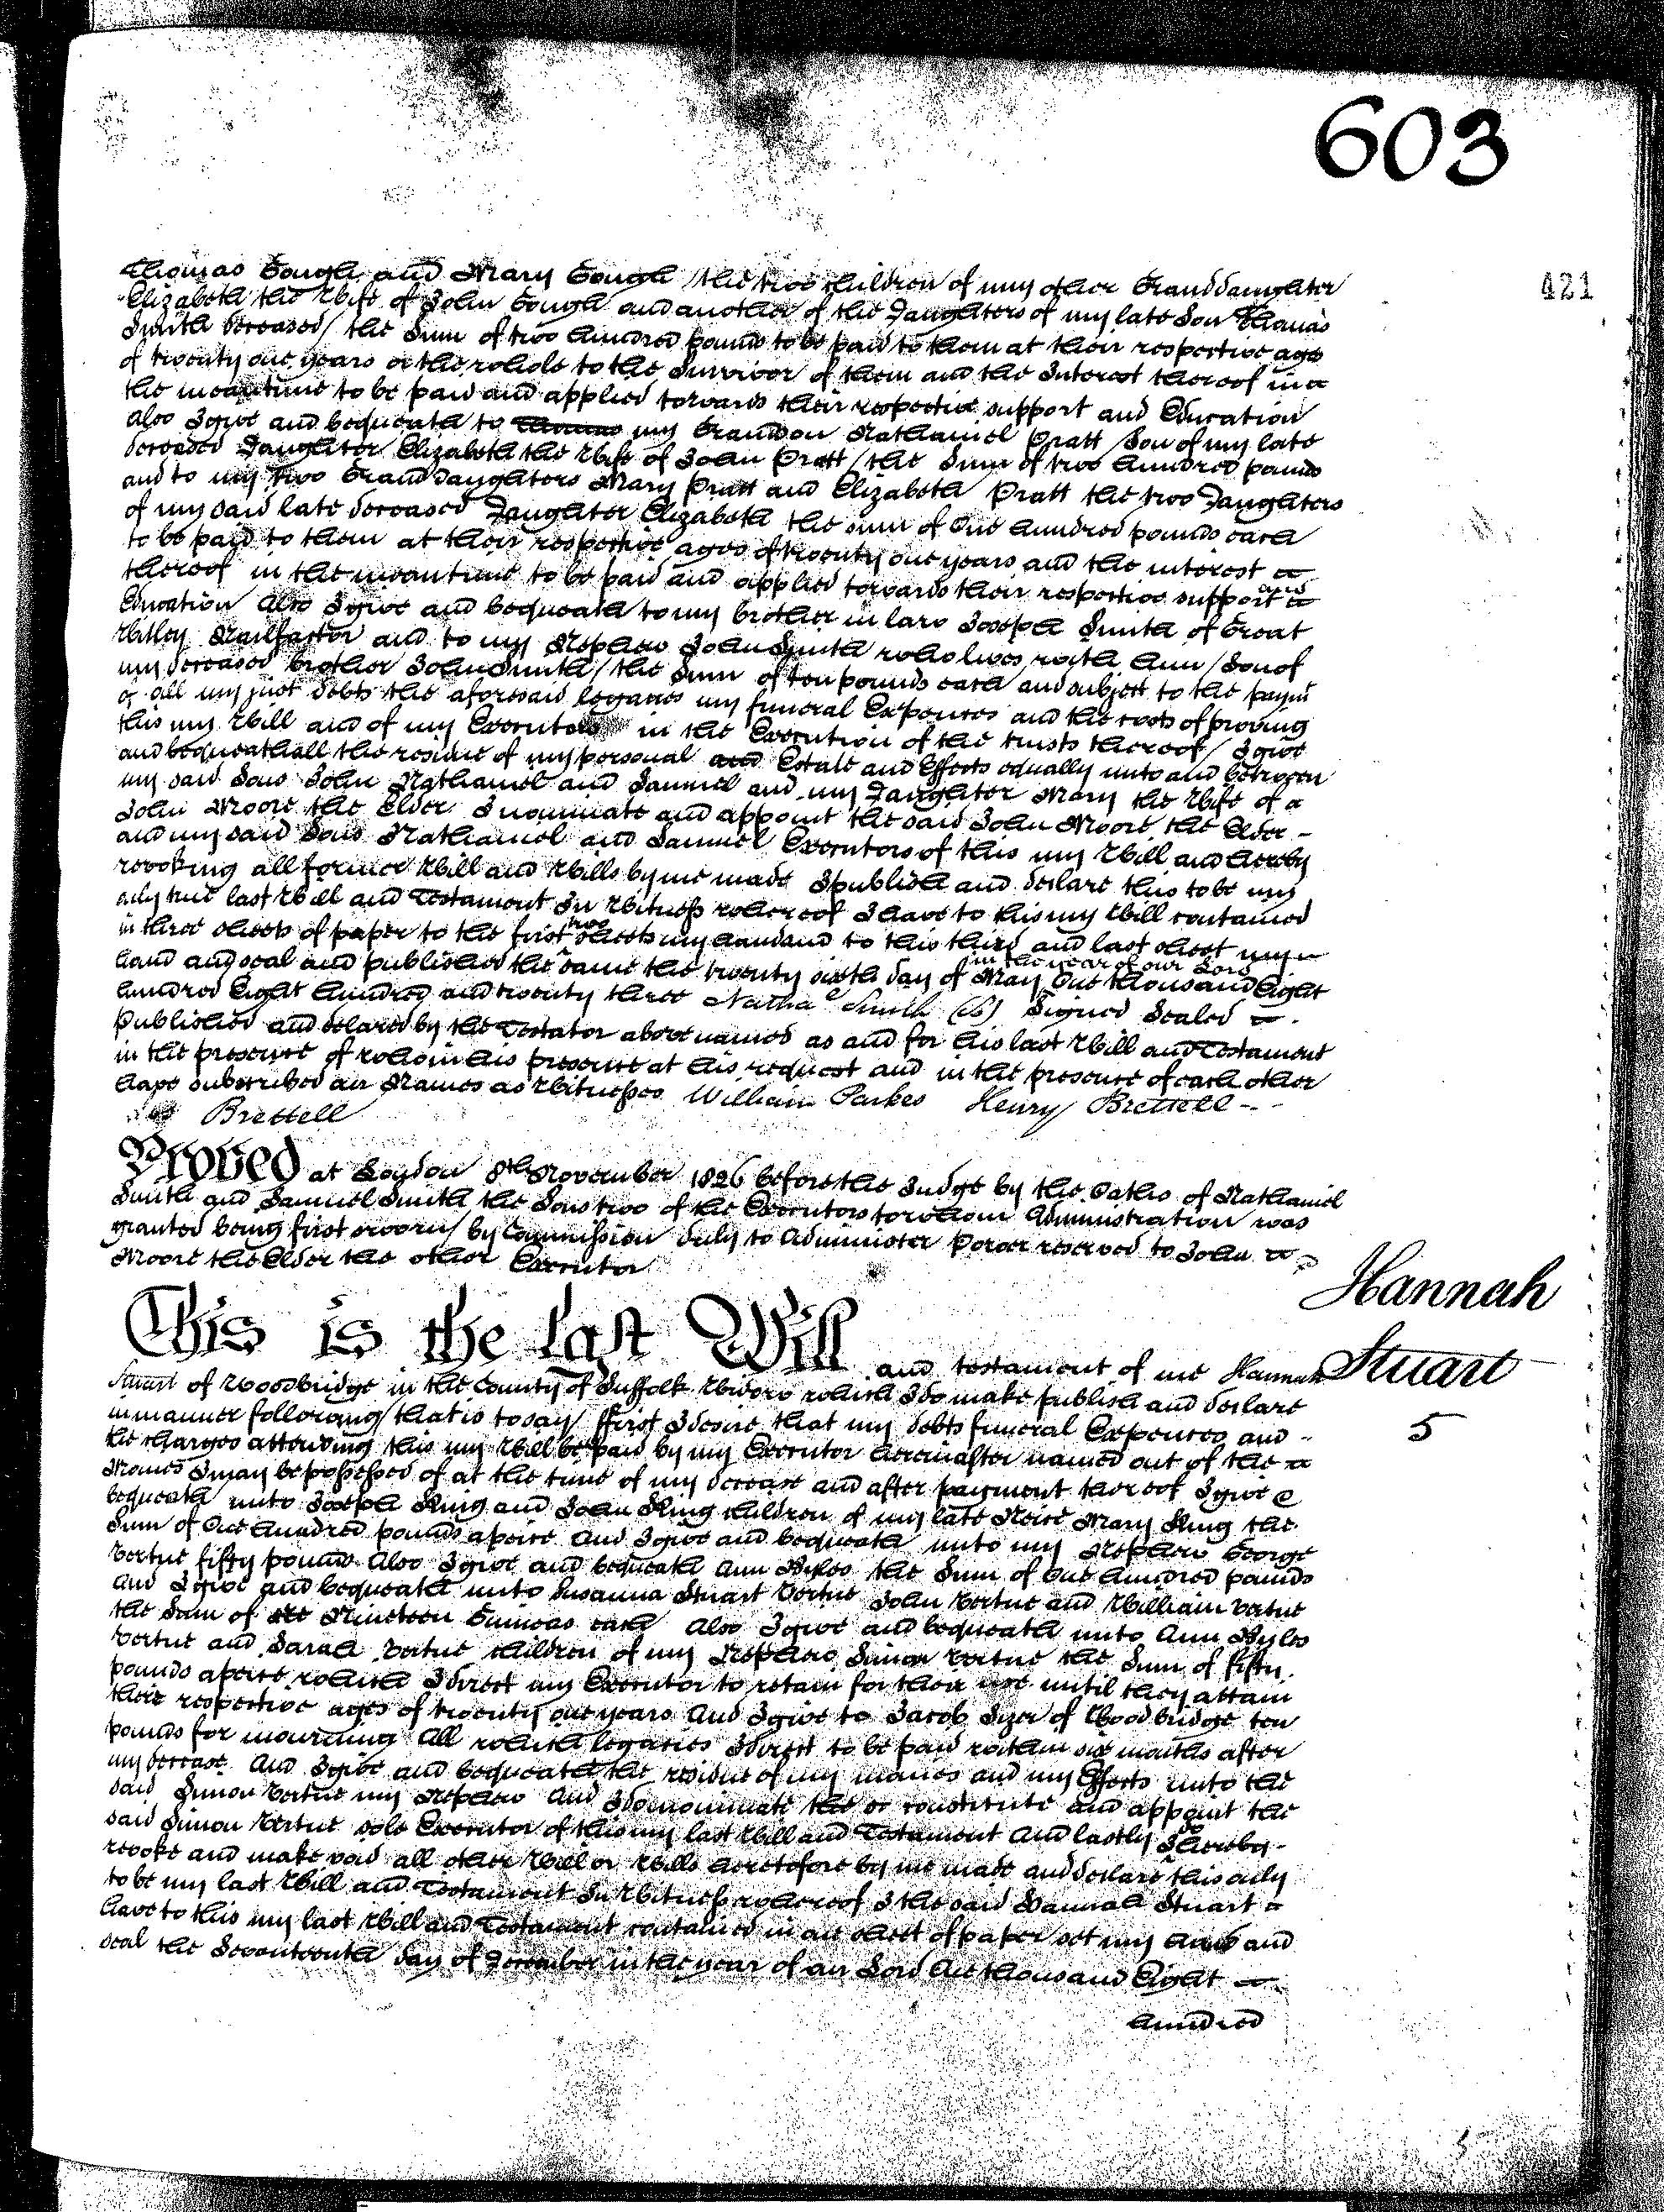 603
421
Thomas Gough and Mary Gough / the two Children of my other Granddaughter
Elizabeth the Wife of John Gough and another of the Daughters of my late Son Thomas
Smith deceased / the Sum of two hundred pounds to be paid to them at their respective ages
of twenty one years or the whole to the Survivor of them and the Interest thereof in
the meantime to be paid and applied towards their respective support and Education
also I give and bequeath to Thomas my Grandson Nathaniel Pratt / Son of my late
deceased Daughter Elizabeth the Wife of John Pratt / the Sum of two hundred pounds
and to my two Granddaughters Mary Pratt and Elizabeth Pratt the two Daughters
of my said late deceased Daughter Elizabeth the sum of One hundred pounds each
to be paid to them at their respective ages of twenty one years and the interest
thereof in the meantime to be paid and applied towards their respective support and
Education Also I give and bequeath to my brother in law Joseph Smith of Great
Witley Nailfactor and to my Nephew John Smith who lives with him / Son of
my deceased brother John Smith / the Sum of ten pounds each and subject to the paymt
of all my just debts the aforesaid legacies my funeral Expences and the costs of proving
this my Will and of my Executors in the Execution of the trusts thereof / I give
and bequeath all the residue of my personal and Estate and Effects equally unto and between
my said Sons John Nathaniel and Samuel and my Daughter Mary the Wife of
John Moore the Elder I nominate and appoint the said John Moore the Elder
and my said Sons Nathaniel and Samuel Executors of this my Will and hereby
revoking all former Will and Wills by me made I publish and declare this to be my
only true last Will and Testament In Witness whereof I have to this my Will contained
in three sheets of paper to the first two sheets my hand and to this third and last sheet my
hand and seal and published the same the twenty sixth day of May in the year of our Lord One thousand Eight
hundred Eight hundred and twenty three Nathal Smith (LS) Signed Sealed
published and declared by the Testator above named as and for his last Will and Testament
in the presence of who in his presence at his request and in the presence of each other
have subscribed our Names as Witnesses William Parkes Henry Brettell
Brettell
Proved at London 8th November 1826 before the Judge by the Oaths of Nathaniel
Smith and Samuel Smith the Sons two of the Executors to whom Administration was
granted being first sworn / by Commission duly to Administer power reserved to John
Moore the Elder the other Executor
Hannah
Stuart
5
This is the last Will and testament of me Hannah
Stuart of Woodbridge in the County of Suffolk Widow which I do make publish and declare
in manner following / that is to say / ffirst I desire that my debts funeral Expences and
the charges attending this my Will be paid by my Executor hereinafter named out of the
Monies I may be possessed of at the time of my decease and after payment thereof I give &
bequeath unto Joseph King and John King children of my late Neice Mary King the
Sum of One hundred pounds apeice And I give and bequeath unto my Nephew George
Vertue fifty pounds Also I give and bequeath Ann Syles the Sum of One hundred pounds
And I give and bequeath unto Susanna Stuart Vertue John Vertue and William Vertue
the Sum of Nineteen Guineas each Also I give and bequeath unto Ann Syles
Vertue and Sarah Vertue children of my Nephew Simon Vertue the Sum of fifty
pounds apeice which I direct my Executor to retain for their use until they attain
their respective ages of twenty one years And I give to Jacob Syer of Woodbridge ten
pounds for mourning All which legacies I direct to be paid within six months after
my decease And I give and bequeath the residue of my monies and my Effects unto the
said Simon Vertue my Nephew And I do nominate constitute and appoint the
said Simon Vertue sole Executor of this my last Will and Testament And lastly I do hereby
revoke and make void all other Will or Wills heretofore by me made and declare this only
to be my last Will and Testament In Witness whereof I the said Hannah Stuart
have to this my last Will and Testament contained in one sheet of paper set my hand and
seal the Seventeenth day of December in the year of our Lord One thousand Eight
hundred